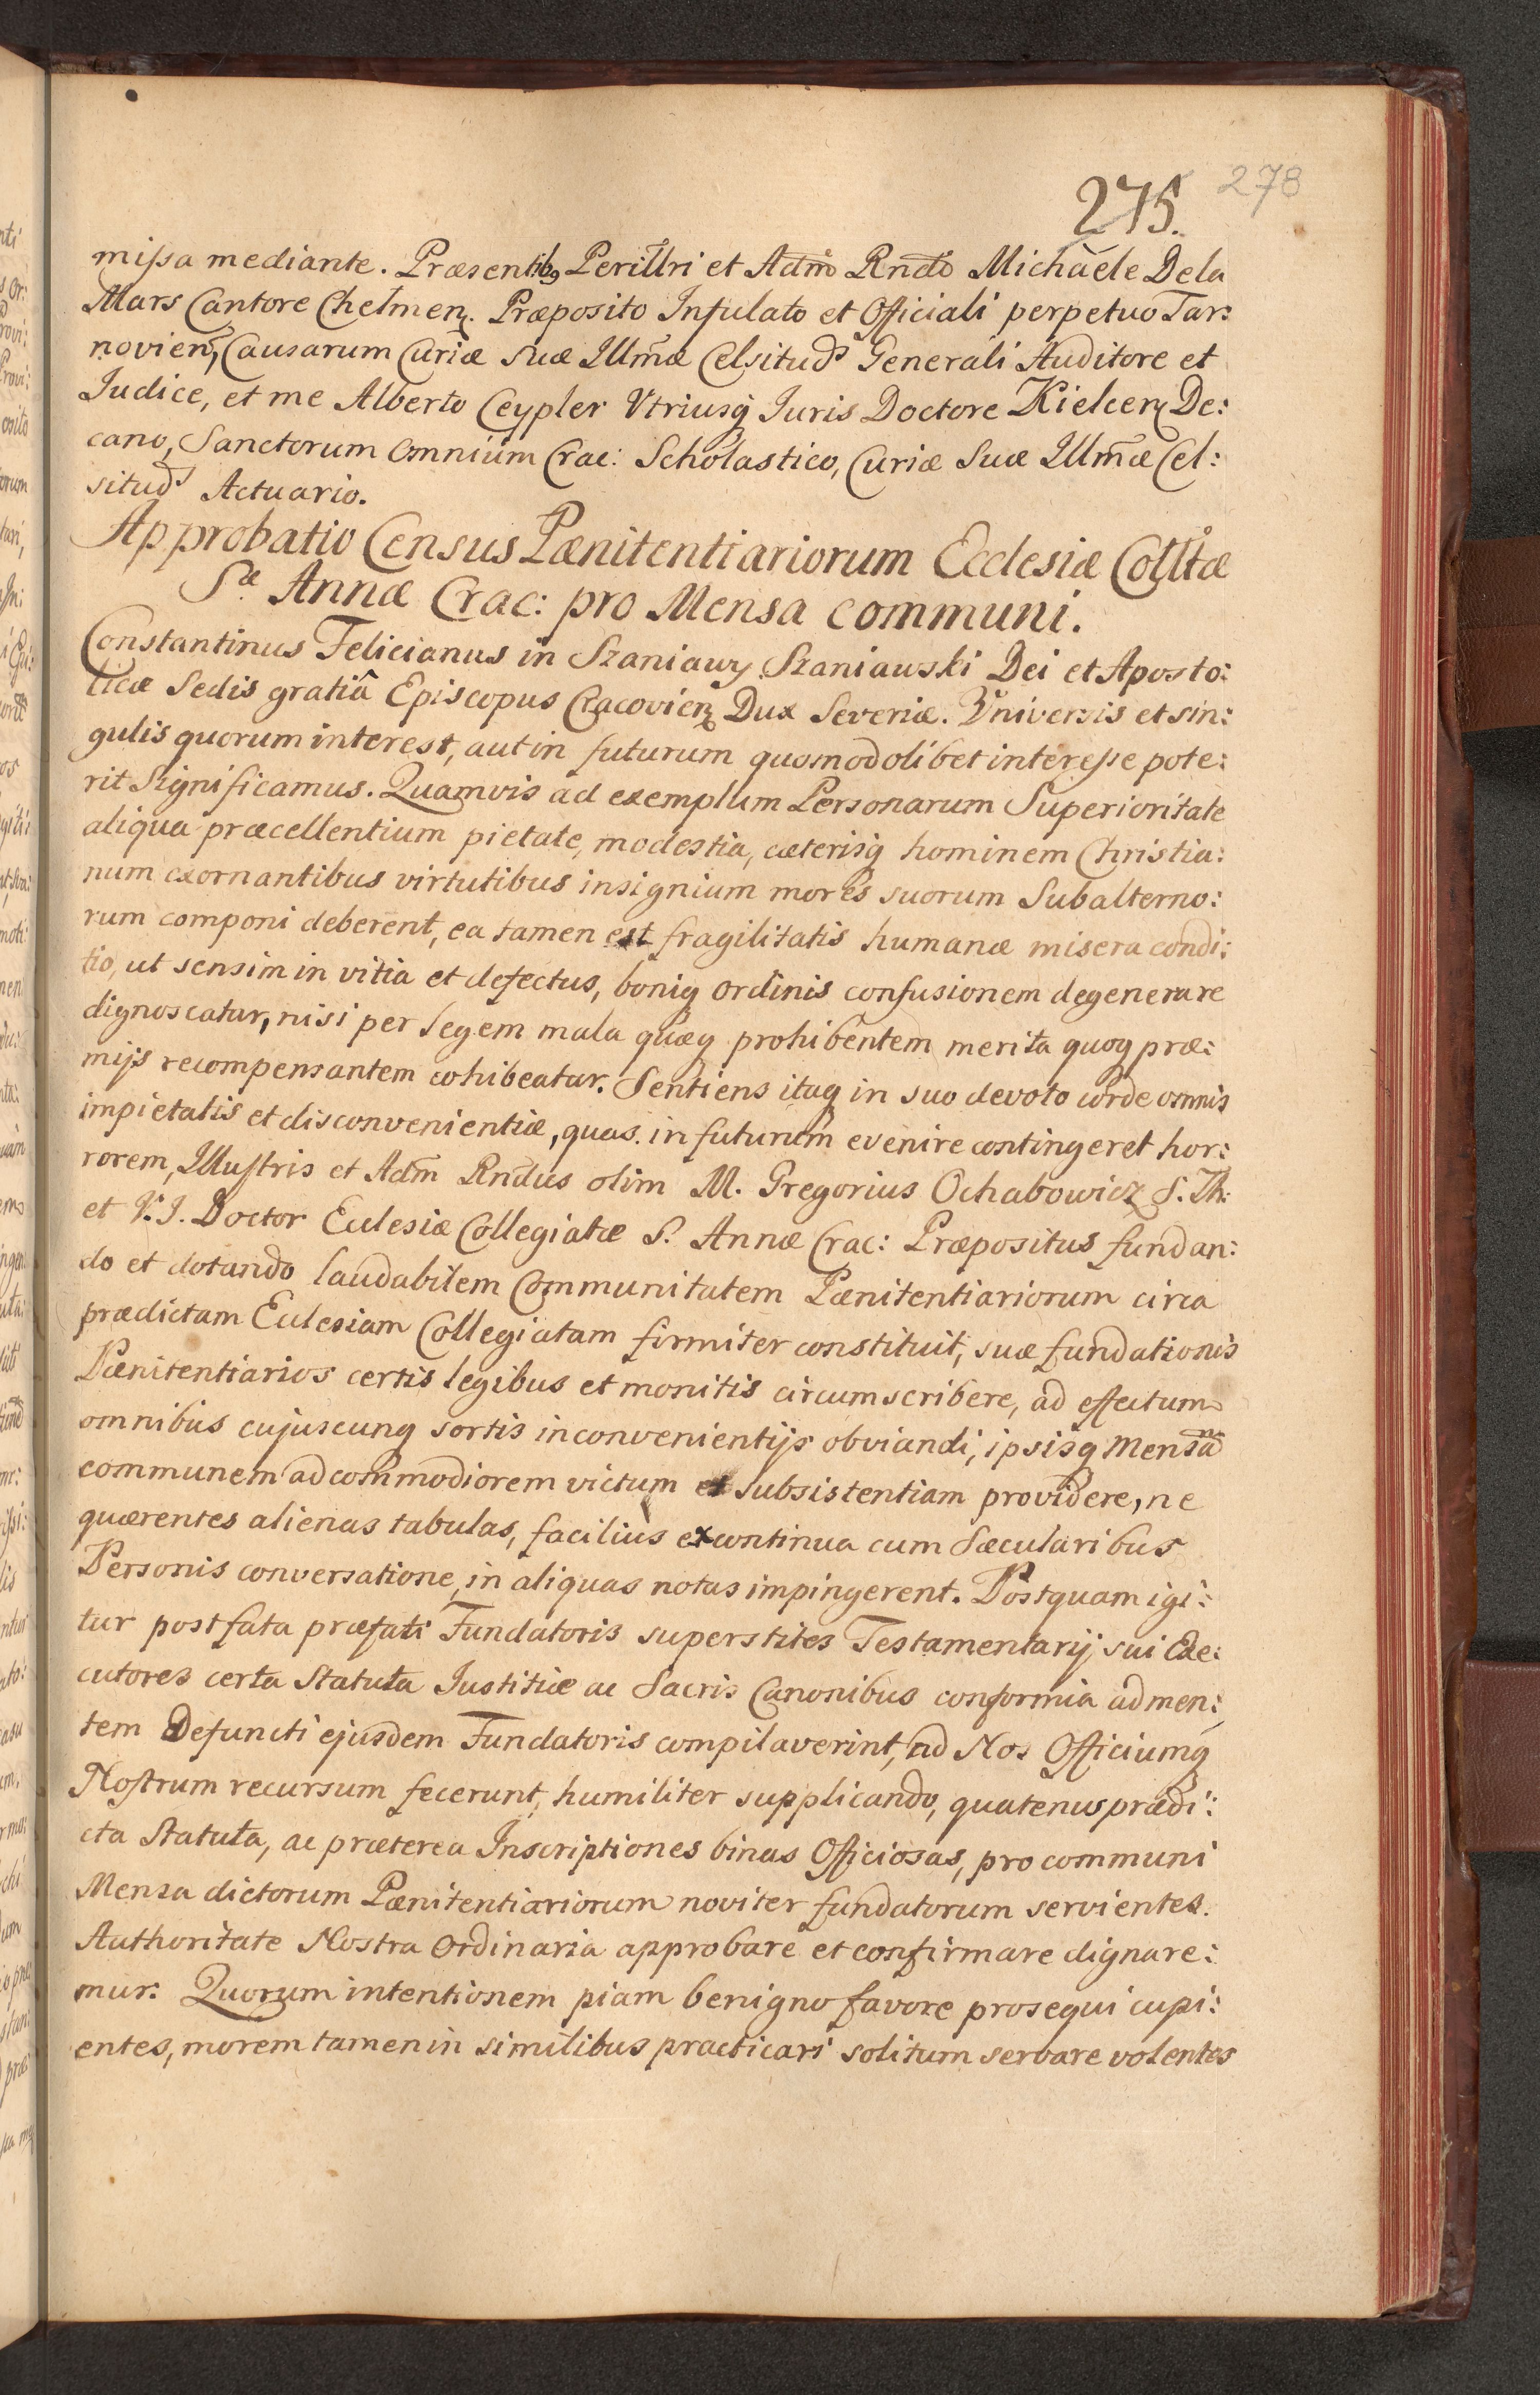 275. 278
missa mediante. Præsentibꝫ Perillri et Adm̃o Rndo Michaele Dela
Mars Cantore Chelmen̄. Præposito Infulato et Officiali perpetuo Tar:
novien̄, Causarum Curiæ Suæ Illm̃æ Celsitud͂s Generali Auditore et
Iudice, et me Alberto Ceypler Utriusq̨ Iuris Doctore Kielcen̄ De:
cano, Sanctorum Omnium Crac: Scholastico, Curiæ Suæ Illm̃æ Cel:
situd͂s Actuario.
Approbatio Census Pænitentiariorum Ecclesiæ Collt̊æ
Sæ Annæ Crac: pro Mensa communi.
Constantinus Felicianus in Szaniawy Szaniawski Dei et Aposto:
licæ Sedis gratiâ Episcopus Cracovien̄ Dux Severiæ. Universis et sin:
gulis quorum interest, aut in futurum quomodolibet interesse pote:
rit Significamus. Quamvis ad exemplum Personarum Superioritate
aliqua præcellentium pietate, modestia, cæterisq̨ hominem Christia:
num exornantibus virtutibus insignium mores suorum Subalterno:
rum componi deberent, ea tamen est fragilitatis humanæ misera condi:
tio, ut sensim in vitia et defectus, boniq̨ ordinis confusionem degenerare
dignoscatur, nisi per legem mala quæq̨ prohibentem merita quoq̨ præ:
mijs recompensantem cohibeatur. Sentiens itaq̨ in suo devoto corde omnis
impietatis et disconvenientiæ, quas in futurum evenire contingeret hor:
rorem, Illustris et Adm̃ Rndus olim M. Gregorius Ochabowicz S. Th:
et V. J. Doctor Ecclesiæ Collegiatæ S. Annæ Crac: Præpositus fundan:
do et dotando laudabilem Communitatem Pænitentiariorum circa
prædictam Ecclesiam Collegiatam firmiter constituit, suæ fundationis
Pænitentiarios certis legibus et monitis circumscribere, ad effectum
omnibus cujuscunq̨ sortis inconvenientijs obviandi, ipsisq̨ Mensam
communem ad commodiorem victum et subsistentiam providere, ne
quærentes alienas tabulas, facilius ex continua cum Sæcularibus
Personis conversatione, in aliquas notas impingerent. Postquam igi:
tur post fata præfati Fundatoris superstites Testamentarij sui Exe:
cutores certa Statuta Iustitiæ ac Sacris Canonibus conformia ad men:
tem Defuncti ejusdem Fundatoris compilaverint, ad Nos Officiumq̨
Nostrum recursum fecerunt, humiliter supplicando, quatenus prædi:
cta Statuta, ac præterea Inscriptiones binas Officiosas, pro communi
Mensa dictorum Pænitentiariorum noviter fundatorum servientes.
Authoritate Nostra Ordinaria approbare et confirmare dignare:
mur: Quorum intentionem piam benigno favore prosequi cupi:
entes, morem tamen in similibus practicari solitum servare volentes